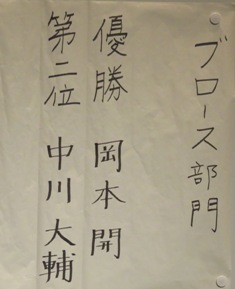 ブロース部門
優勝 岡本開
第二位 中川大輔